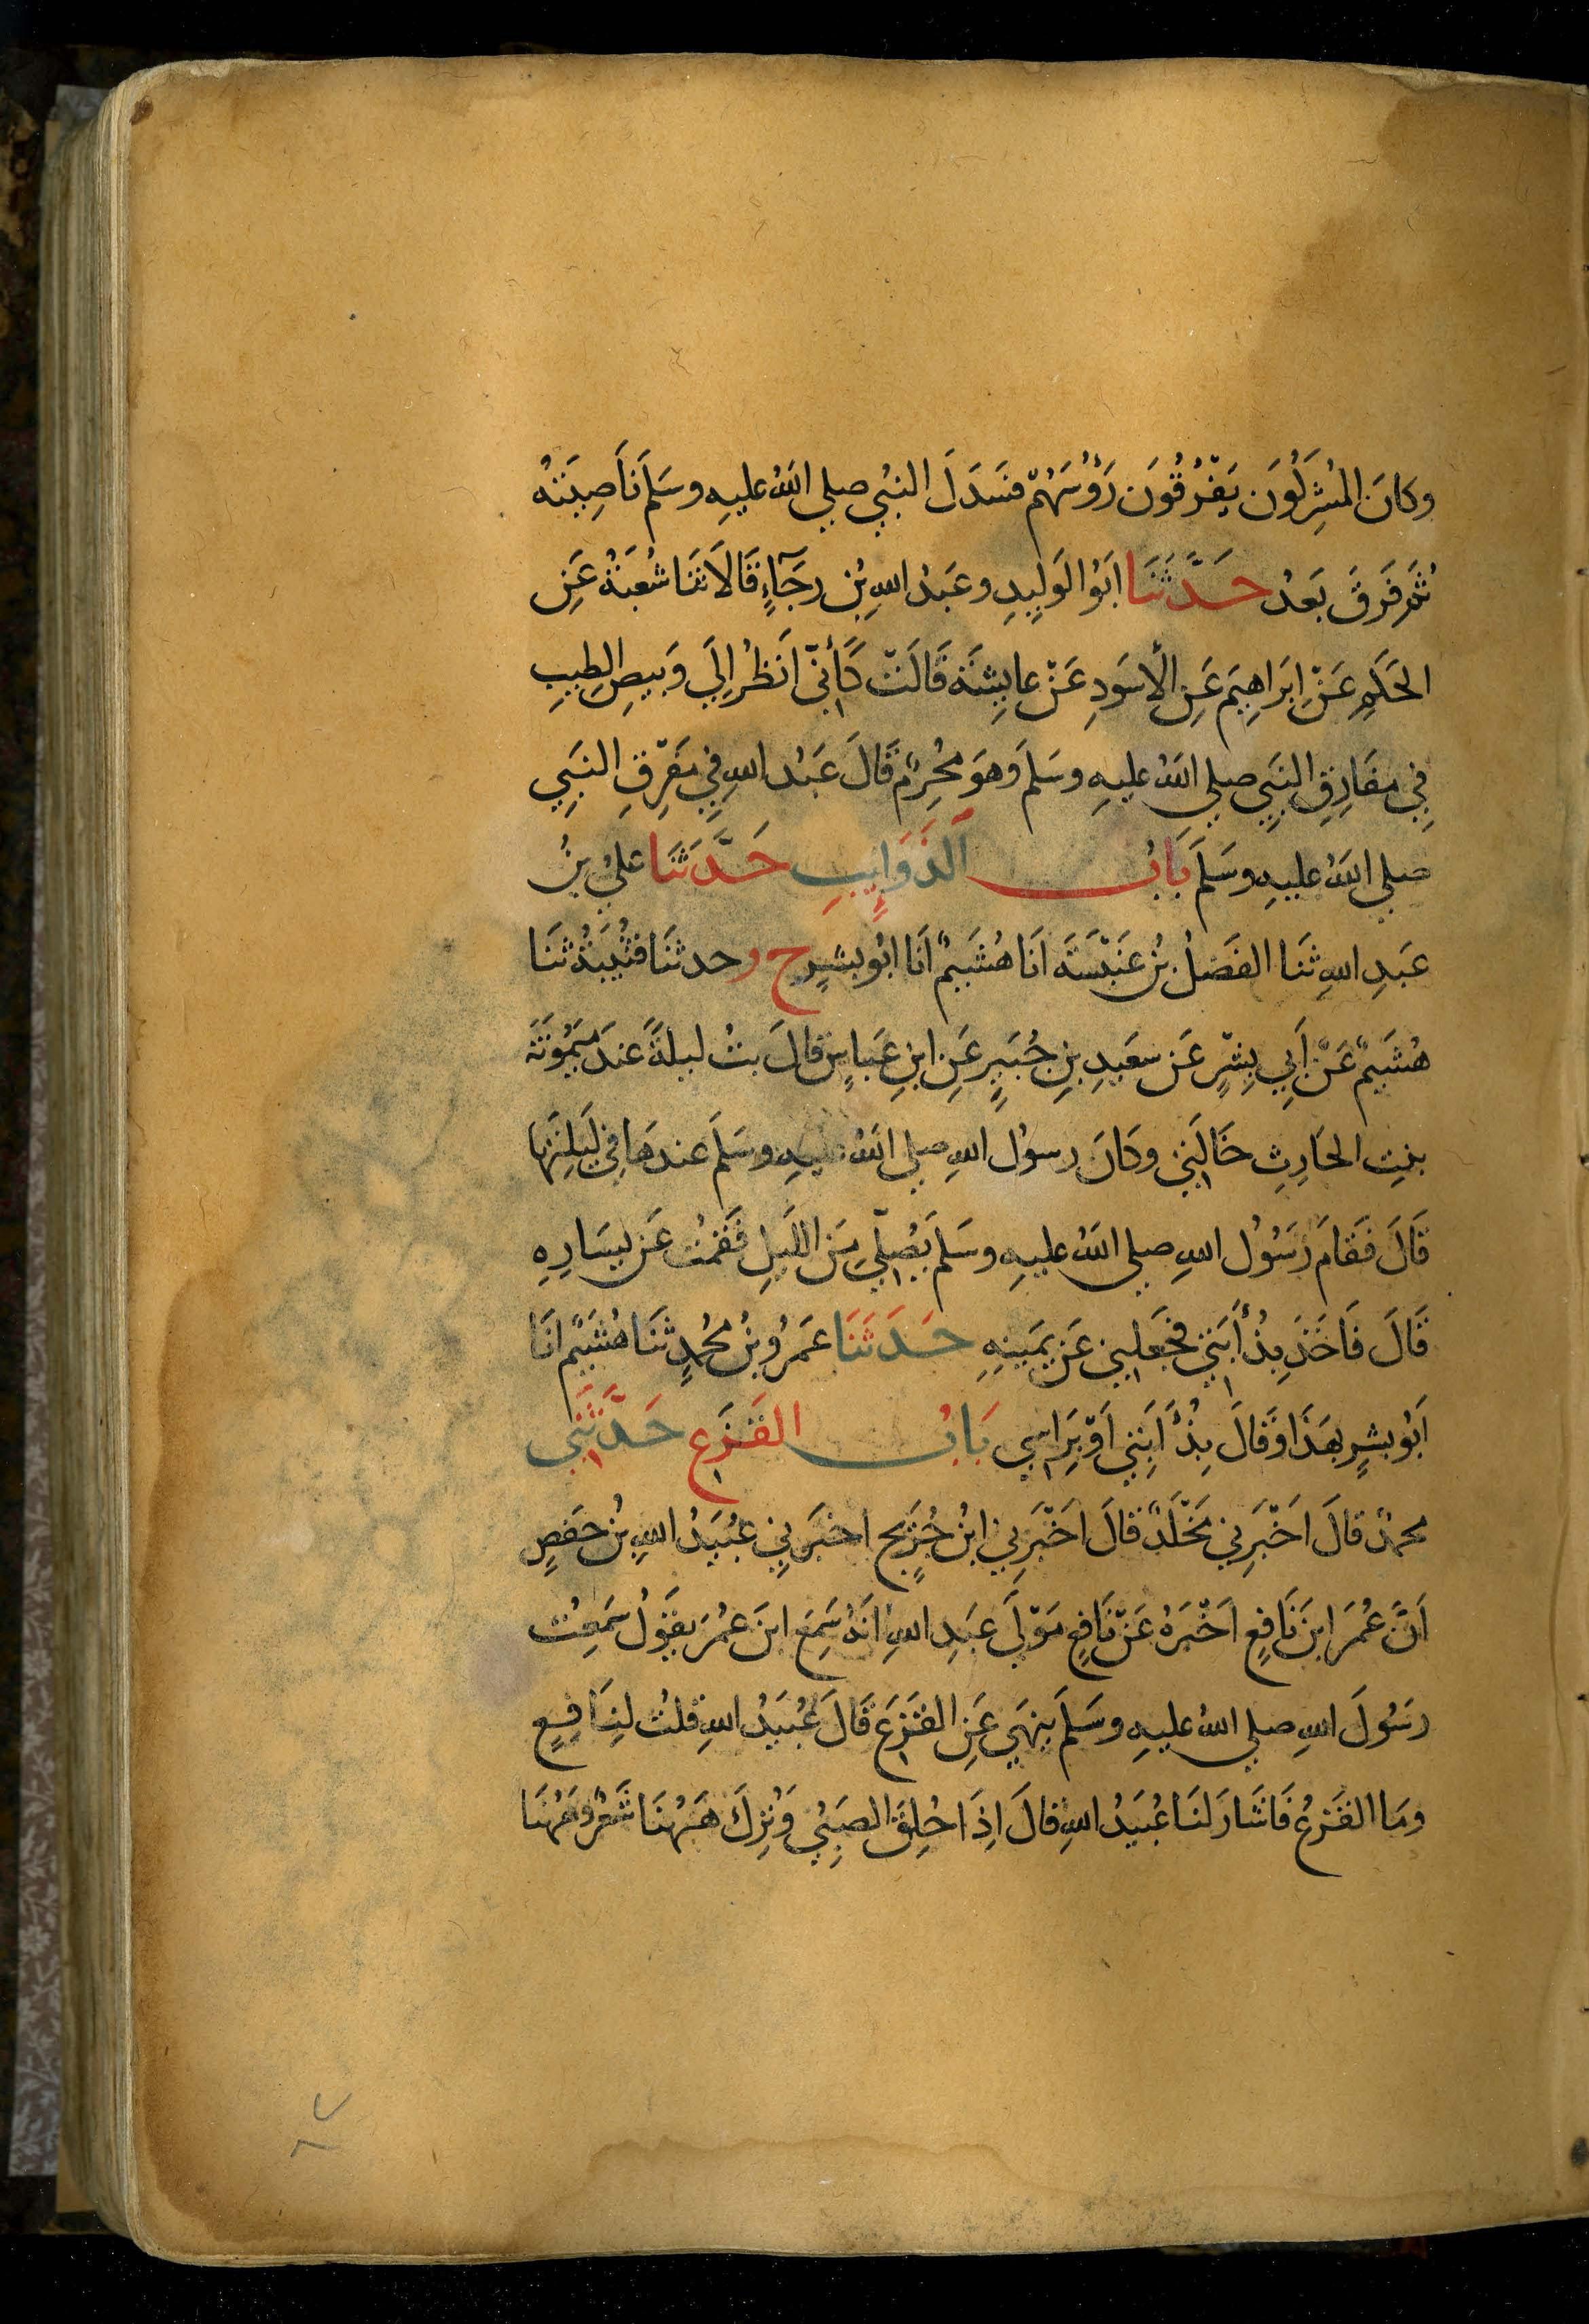 وكانَ المُشرِكُونَ يَفْرُقُونَ رَؤُسَهُمْ فسَدَلَ النبيُ صلي اللهُ عليهِ وسَلمَ نَاصِيَتَهُ
ثُمَ فَرقَ بَعدُ حَدَّثَنَا ابَوُا لوَلِيدِ وعَبدُ اللهِ بُن رجَآءٍ قَالاَ ثنَا شُعبَةُ عَنِ
الحَكَمِ عَنْ اِبرَاهِيَم عَنِ الأسَودِ عَنْ عايِشَةَ قَالَتْ كَأنّي اَنظُرُ اِلَي وَبيصِ الطِيبِ
فِي مفَارِقِ النَبِي صلي اللهُ عليهِ وسَلمَ وهوَ مُحْرِمٌ قَالَ عَبدُ اللهِ فِي مَفرِقِ النبَيِ
صلي اللهُ عليهِ وسَلَمَ بَابُ اَلذَوَايِبِ حَدَّثنَا عَليُ بنُ
عَبدِ اللهِ ثنَا الفَضلُ بنُ عَنْبَسَةَ اَنَا هُشَيمٌ اَنَا ابُو بِشرٍ ح وحدثنَا قتُيبَةُ ثنَا
هُشَيمٌ عَنْ اَبِي بِشْرٍ عَن سعَيدِ بنِ جُبَيرٍ عَنِ ابنِ عَباسٍ قالَ بتُ ليلةً عندَ ميَمُونَةَ
بنتِ الحَارِثِ خَالَتِي وكَانَ رسوُل اللهِ صلي اللهُ عليهِ وسَلَمَ عندهَا فِي لَيلتِهَا
قَالَ فَقامَ رَسُوُل اللهِ صلي اللهُ عليهِ وسَلمَ يُصَلّي مِنَ الليَلِ فقَمتُ عَن يسَارِهِ
قَالَ فَاخَذ بِذُأَبتِي فجَعَلنِي عَن يَمينِهِ حَدَثنَا عَمرُو بنُ مُحُمدٍ ثنَا هُشَيمٌ انَا
اَبُو بشرٍ بهَذَا وَقالَ بِذُأَبَتِي اَوْ بِرَاسِي بَابُ القَزَعِ حَدَّثَنِي
محمدٌ قالَ اَخْبَرنِي مَخْلَدٌ قالَ اَخْبَرنِي ابنُ جُرَيج اخبَرنِي عُبَيدُ اللهِ بنُ حَفصٍ
اَنَّ عُمَرَ ابنَ نَافِعٍ اَخْبَرَهُ عَنْ نَافِعٍ مَوْلَي عَبدِ اللهِ اَنهُ سَمِعَ ابنَ عمُرَ يقَوُلُ سَمعِتُ
رسَوُلَ اللهِ صلي اللهُ عليهِ وسَلَمَ يَنهَي عَنِ القَزَعِ قَالَ عُبَيدُ اللهِ قلتُ لنِاَفِعٍ
ومَا القَزعُ فَاشَارَ لنَا عُبَيدُ اللهِ قالَ اِذَا حُلِقَ الصبَيُ وتُرِكَ هَهُنَا شَعْرٌ وهَهُنَا